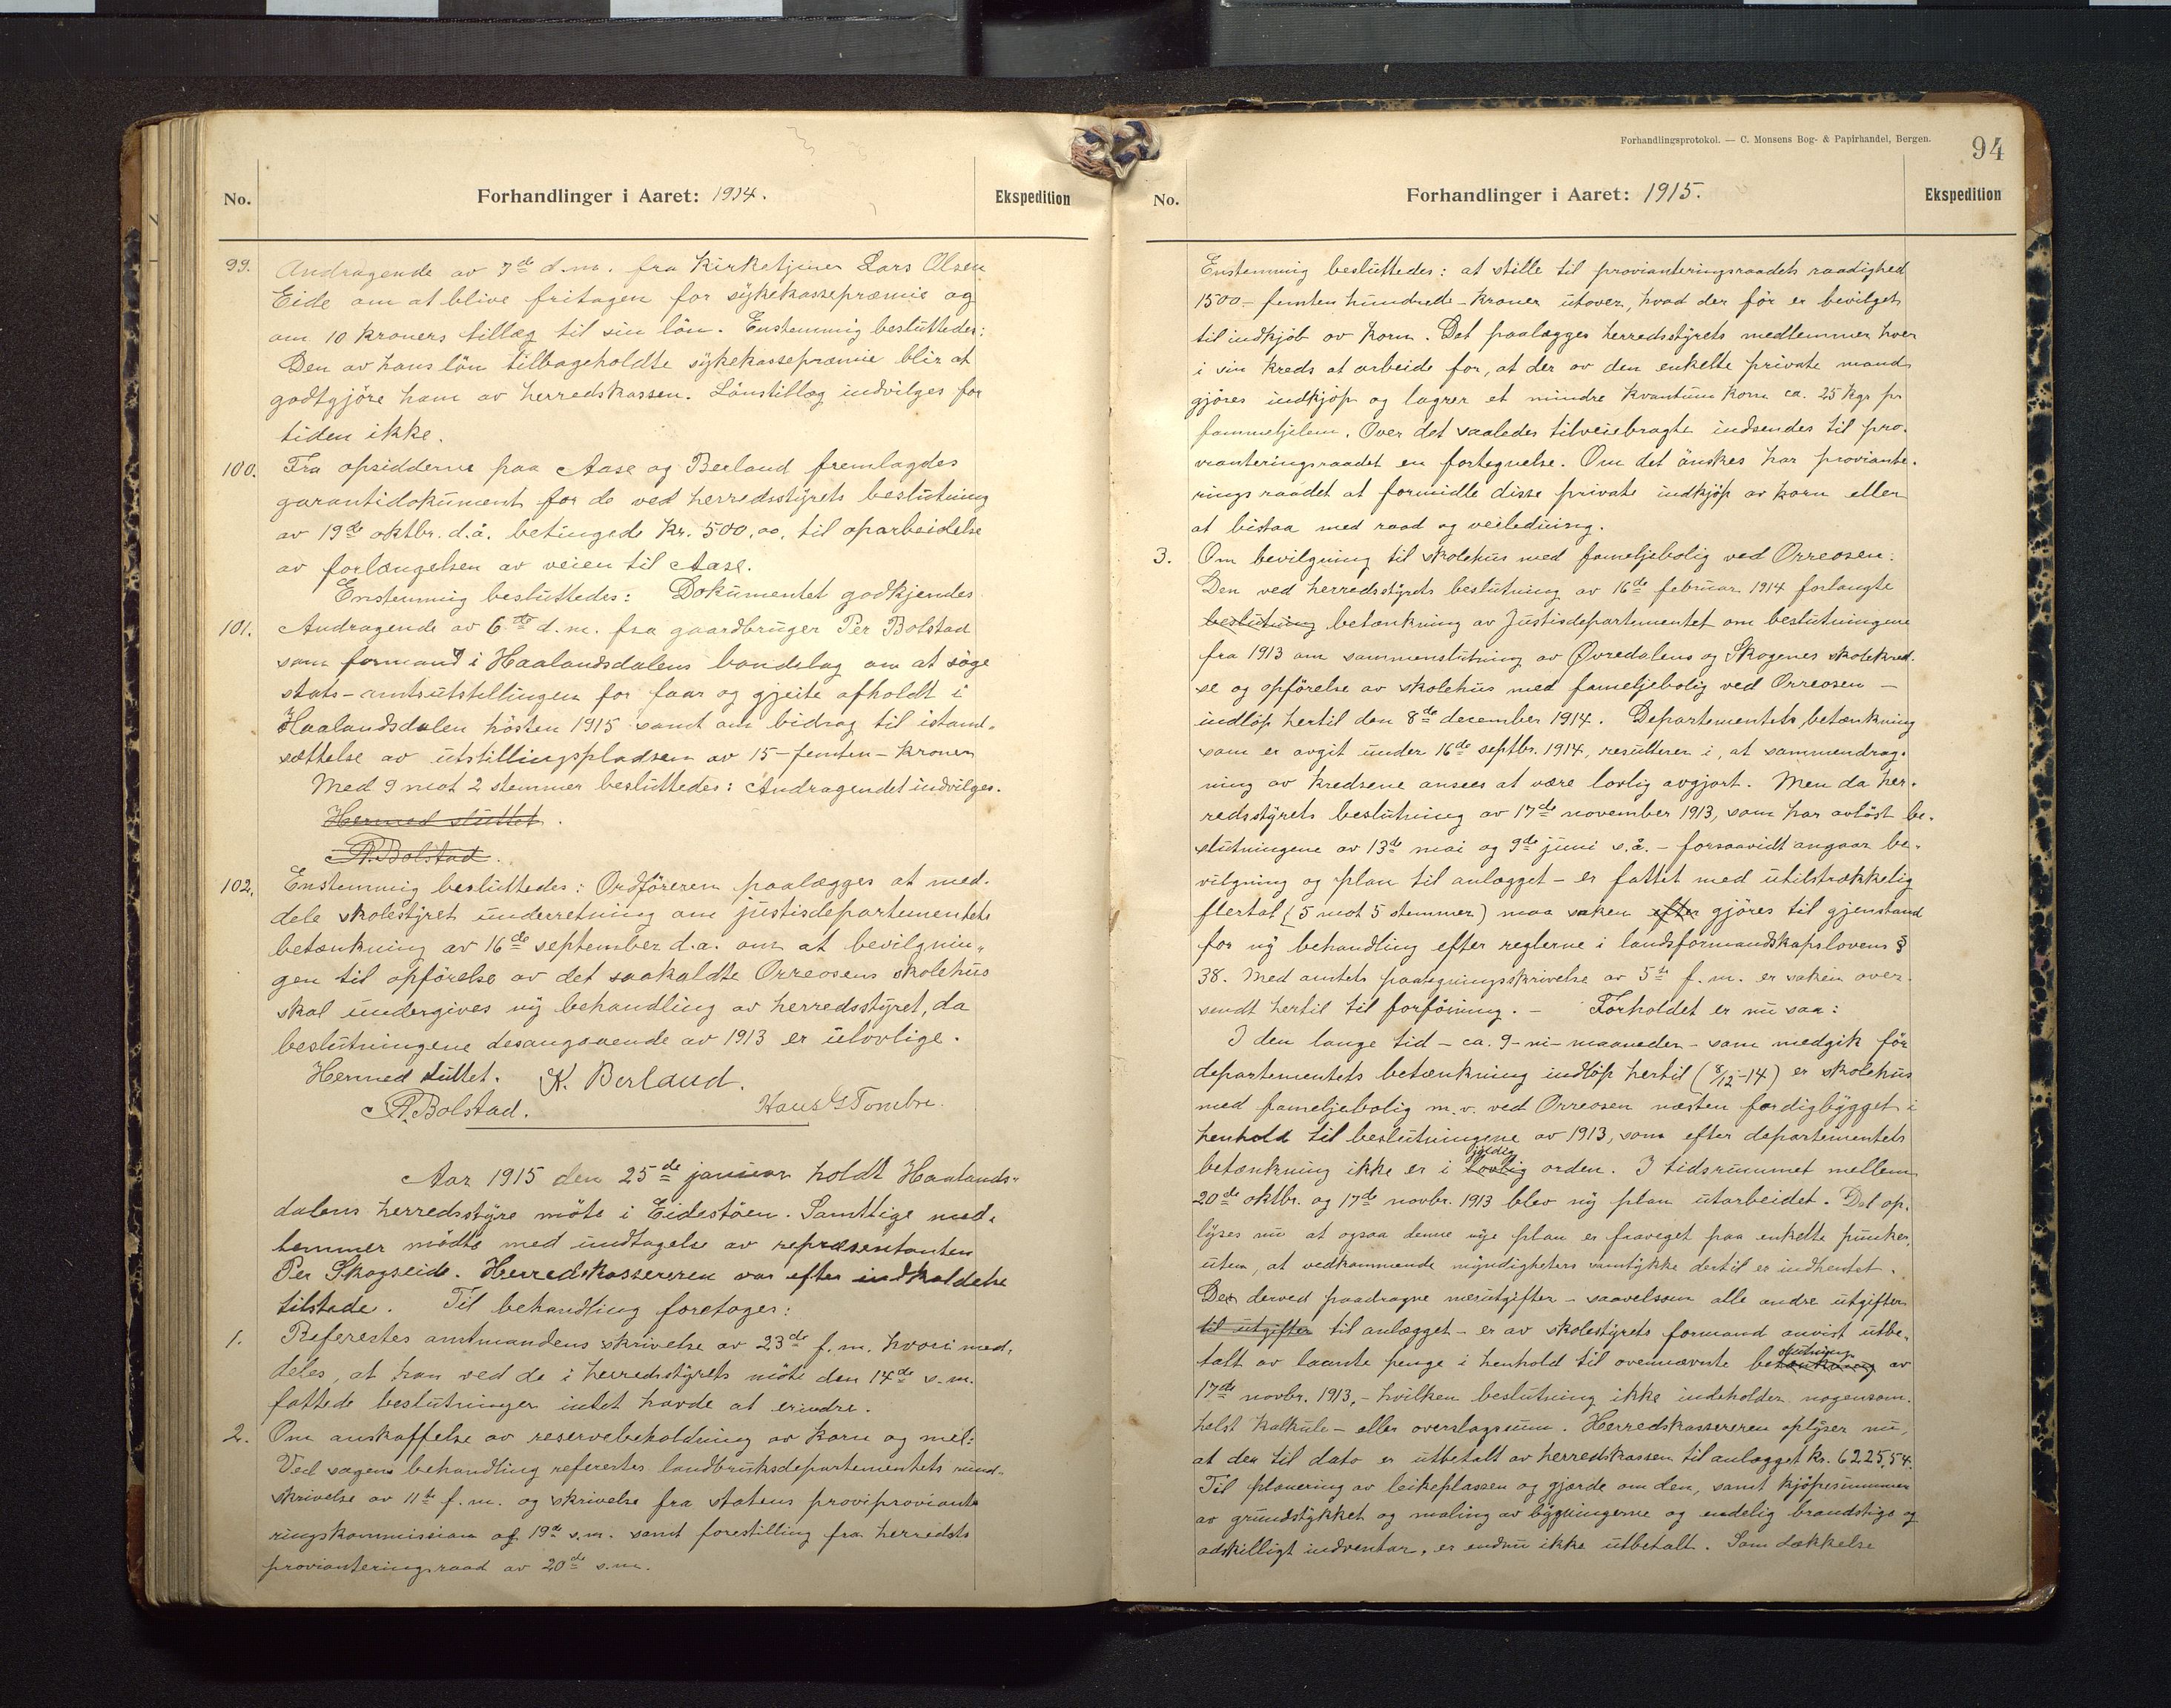 No.
Forhandlinger i Aaret: 1914.
Ekspedition
99. Andragende av 7de d.m. fra Kirketjener Lars Olsen
Eide om at blive fritagen for sykekassepræmie og
om 10 kroners tillæg til sin lön. Enstemmig besluttedes:
Den av hans lön tilbageholdte sykekassepræmie blir at
godtgjöre ham av herredskassen. Lönstillæg indvilges for
tiden ikke.
100. Fra opsidderne paa Aase og Berland fremlagdes
garantidokument for de ved herredsstyrets beslutning
av 19de oktbr. d.å. betingede Kr. 500,00, til oparbeidelse
av forlængelsen av veien til Aase.
Enstemmig besluttedes: Dokumentet godkjendes
101. Andragende av 6te d.m. fra gaardbruger Per Bolstad
som formand i Haalandsdalens bondelag om at söge
stats-amtsutstillingen for faar og gjeite afholdt i
Haalandsdalen hösten 1915 samt om bidrag til istand-
sættelse av utstillingspladsen av 15-femten-kroner
Med 9 mot 2 stemmer besluttedes: Andragendet indvilges.
Hermed sluttet.
P. Bolstad.
102. Enstemmig besluttedes: Ordföreren paalægges at med-
dele skolestyret underretning om justisdepartementets
betænkning av 16de september d.a. om at bevilgnin-
gen til opförelse av det saakaldte Orreosens skolehus
skal undergives ny behandling av herredsstyret, da
beslutningene desangaaende av 1913 er ulovlige.
Hermed sluttet. K. Berland.
P. Bolstad. Hans G Tombre.
Aar 1915 den 25de januar holdt Haalands-
dalens herredsstyre möte i Eidestöen. Samtlige med-
lemmer mödte med undtagelse av repræsentanten
Per Skogseide. Herredskassereren var efter indkaldelse
tilstede. Til behandling foretoges:
1. Referertes amtmandens skrivelse av 23de f.m. hvori med-
deles, at han ved de i herredsstyrets möte den 14de s.m.
fattede beslutninger intet havde at erindre.
2. Om anskaffelse av reservebeholdning av korn og mel:
Ved sagens behandling referertes landbruksdepartementets rund-
skrivelse av 11te f.m. og skrivelse fra statens proviproviante
ringskommission af 19de s.m. samt forestilling fra herredets
provianteringsraad av 20de s.m.
Forhandlingsprotokol. — C. Monsens Bog- & Papirhandel, Bergen.
94
No.
Forhandlinger i Aaret: 1915.
Ekspedition
Enstemmig besluttedes: at stille til provianteringsraadets raadighed
1500.- femten hundrede-kroner utover, hvad der för er bevilget
til indkjöb av korn. Det paalægges herredsstyrets medlemmer hver
i sin kreds at arbeide for, at der av den enkelte private mand
gjöres indkjöp og lagrer et mindre kvantum korn ca. 25 kgr pr
fammeljelem. Over det saaledes tilveiebragte indsendes til pro-
vianteringsraadet en fortegnelse. Om det önskes har proviante-
ringsraadet at formidle disse private indkjöp av korn eller
at bistaa med raad og veiledning.
3. Om bevilgning til skolehus med fameljebolig ved Orreosen:
Den ved herredsstyrets beslutning av 16de februar 1914 forlangte
beslutning betænkning av Justisdepartementet om beslutningene
fra 1913 om sammenslutning av Øvredalens og Skogenes skolekred-
se og opförelse av skolehus med fameljebolig ved Orreosen —
indlöp hertil den 8de december 1914. Departementets betænkning
som er avgit under 16de septbr. 1914, resulterer i, at sammendrag-
ning av kredsene ansees at være lovlig avgjort. Men da her-
redsstyrets beslutning av 17de november 1913, som har avlöst be-
slutningene av 13de mai og 9de juni s.å. - forsaavidt angaar be-
vilgning og plan til anlægget - er fattet med utilstrækkelig
flertal (5 mot 5 stemmer) maa saken efter gjöres til gjenstand
for ny behandling efter reglerne i landsformandskapslovens §
38. Med amtets paategningsskrivelse av 5te f.m. er saken over-
sendt hertil til forföining. — Forholdet er nu saa:
I den lange tid - ca. 9-ni-maaneder - som medgik för
departementets betænkning indlöp hertil (8/12-14) er skolehus
med fameljebolig m.v. ved Orreosen næsten færdigbygget i
henhold til beslutningene av 1913, som efter departementets
betænkning ikke er i lovlig gyldig orden. I tidsrummet mellem
20de oktbr. og 17de novbr. 1913 blev ny plan utarbeidet. Det op-
lyses nu at ogsaa denne nye plan er fraveget paa enkelte punkter,
uten, at vedkommende myndigheters samtykke dertil er indhentet.
De derved paadragne merutgifter - saavelsom alle andre utgifter
til utgifter til anlægget - er av skolestyrets formand anvist utbe-
talt av laante penge i henhold til ovennævnte betænkning slutning av
17de novbr. 1913, - hvilken beslutning ikke indeholder nogensom-
helst kalkule- eller overslagssum. Herredskassereren oplyser nu,
at der til dato er utbetalt av herredskassen til anlægget kr. 6225,54.
Til planering av leikeplassen og gjærde om den, samt kjöpesummen
av grundstykket og maling av bygningerne og endelig brandstige og
adskilligt indventar, er endnu ikke utbetalt. Som dækkelse